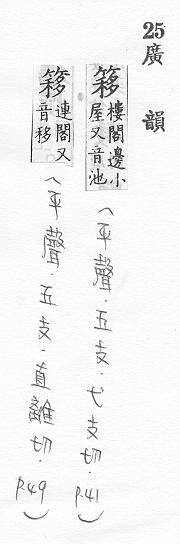 25廣韻
簃樓閣邊小屋又音池
(平聲.五支.弋支切.p.41)
簃連閣又音移
(平聲.五支.直離切.p.49)